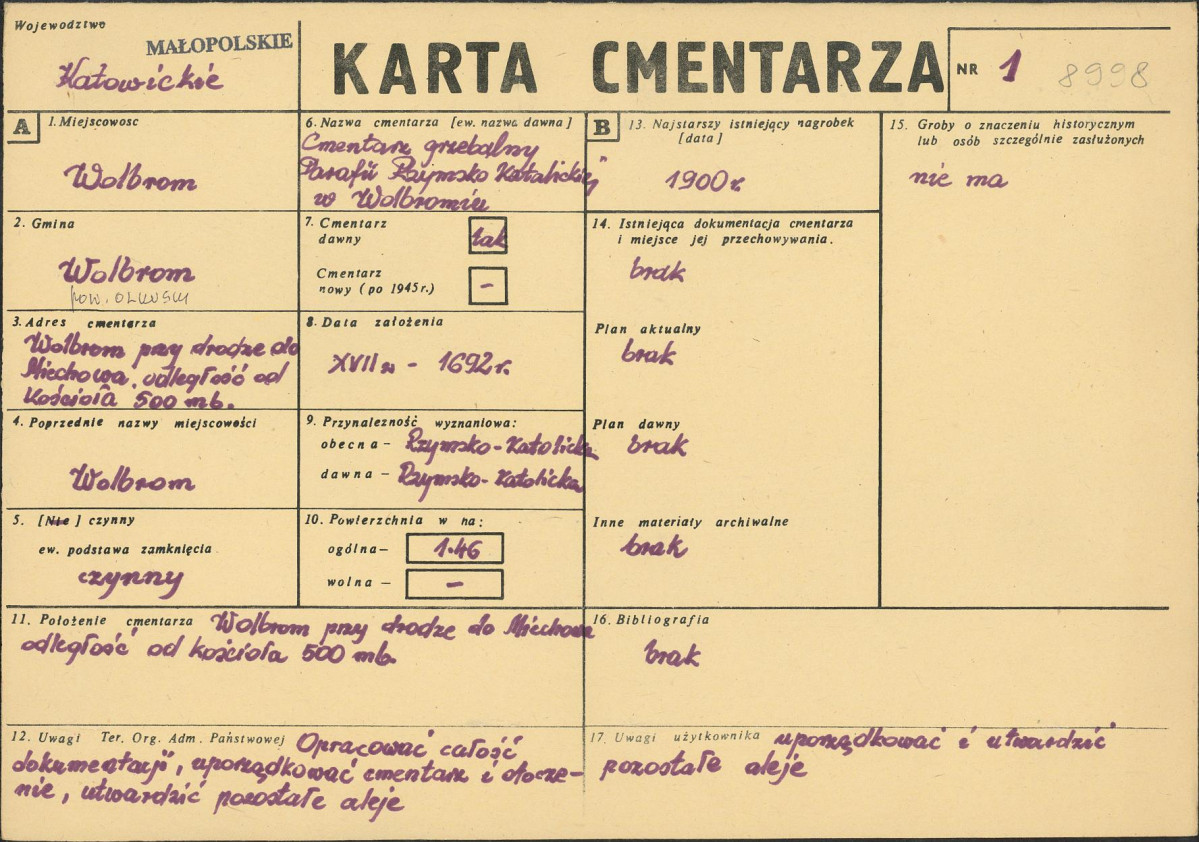 Województwo
MAŁOPOLSKIE
Katowickie
KARTA CMENTARZA
NR 1 8998
A
1. Miejscowosc
Wolbrom
2. Gmina
Wolbrom
pow. OLKUSKI
3. Adres cmentarza
Wolbrom przy drodze do
Miechowa, odległość od
Kościoła 500 mb.
4. Poprzednie nazwy miejscowości
Wolbrom
5. [Nie] czynny
ew. podstawa zamknięcia
czynny
6. Nazwa cmentarza [ew. nazwa dawna]
Cmentarz grzebalny
Parafii Rzymsko Katolickiej"
w Wolbromiu
7. Cmentarz
dawny
tak
Cmentarz
nowy (po 1945 r.)
–
8. Data założenia
XVII w - 1692 r.
9. Przynależność wyznaniowa:
obecna – Rzymsko-Katolicka
dawna – Rzymsko-Katolicka
10. Powierzchnia w ha:
ogólna – 1.46
wolna – –
B
13. Najstarszy istniejący nagrobek
[data]
1900 r.
14. Istniejąca dokumentacja cmentarza
i miejsce jej przechowywania.
brak
Plan aktualny
brak
Plan dawny
brak
Inne materiały archiwalne
brak
15. Groby o znaczeniu historycznym
lub osób szczególnie zasłużonych
nie ma
11. Położenie cmentarza Wolbrom przy drodze do Miechowa
odległość od kościoła 500 mb.
16. Bibliografia
brak
12. Uwagi Ter. Org. Adm. Państwowej Opracować całość
dokumentacji, uporządkować cmentarz i otocze-
nie, utwardzić pozostałe aleje
17. Uwagi użytkownika uporządkować i utwardzić
pozostałe aleje